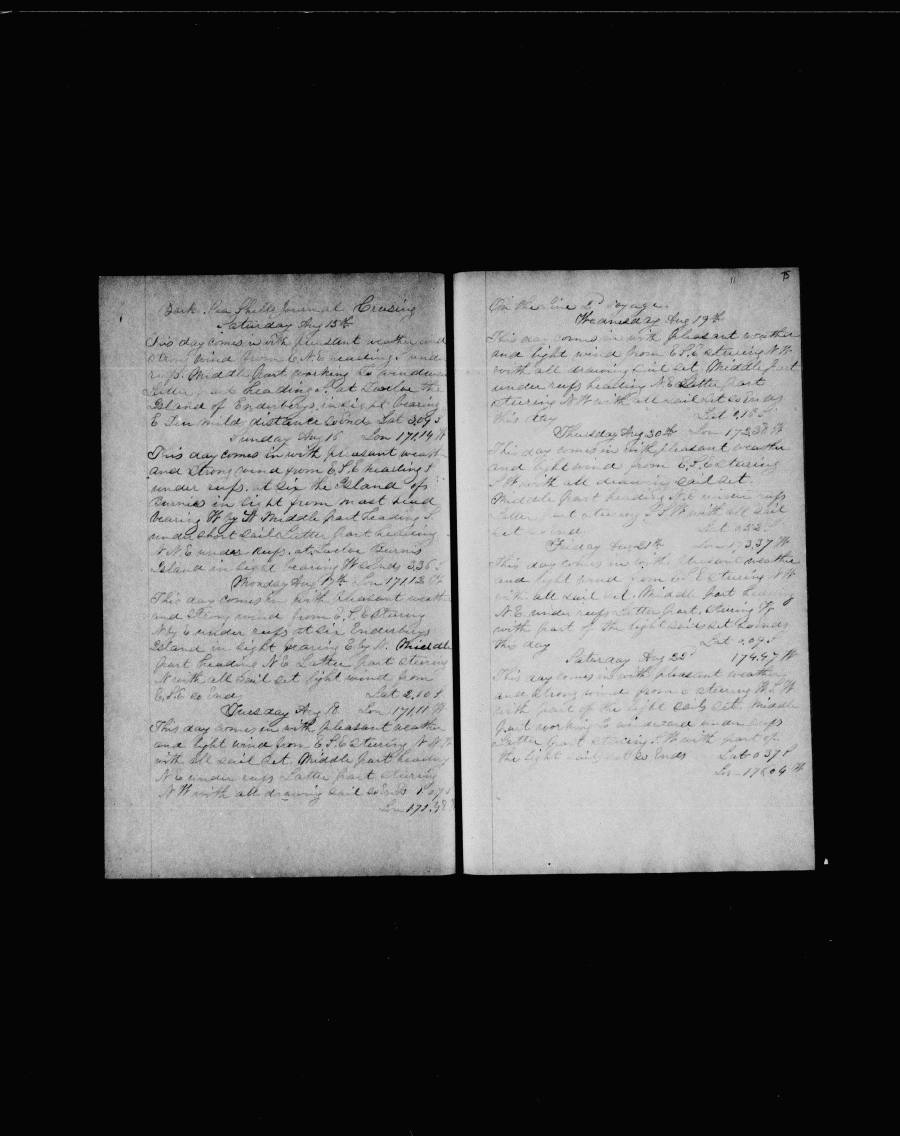 Bark Sea Shells Journal Cruising
Saturday Aug 15th
This day comes in with pleasant weather and
strong wind from E.N.E heading S under
reefs. Middle part working to windward
Latter part heading S. at twelve the
Island of Enderbys in sight bearing
E Ten mild distance So Ends Lat 3.09 S
Sunday Aug 16 Lon 171,14 W
This day comes in with pleasant weather
and strong wind from E.S.E heading S
under reefs. at six the Island of
Burnies in sight from mast head
bearing W by N Middle part heading S
under short sail Latter part heading
N.N.E under reefs. at twelve Burnis
Island in sight bearing W So Ends 3.36 S
Monday Aug 17th Lon 171,12 W
This day comes in with pleasant weather
and strong wind from E.S.E steering
N by E under reefs at six Enderbirys
Island in sight bearing E by N. Middle
part heading N.E Latter part steering
N with all sail set light wind from
E.S.E So Ends Lat 2.10 S
Tuesday Aug 18 Lon 171,11 W
This day comes in with pleasant weather
and light wind from E.S.E steering N.W
with all sail set. Middle part heading
N.E under reefs Latter part steering
N W with all drawing sail So Ends 1.07 S
Lon 171.
75
On the Line 2d Voyage
Wednesday Aug 19th
This day comes in with pleasant weather
and light wind from E.S.E steering N.W.
with all drawing sail set, Middle part
under reefs heading N.E Latter part
steering N W with all sail set So Ends
this day Lat 0,16 S
Thursday Aug 20th Lon 172.38 W
This day comes in with pleasant weather
and light wind from E.S.E steering
S W with all drawing sail set.
Middle part heading N.E under reefs
Latter part steering S.S.W with all sail
set So Ends Lat 0.52 S
Friday Aug 21th Lon 173,37 W
This day comes in with pleasant weather
and light wind from E.S.E steering N.W
with all sail set. Middle part heading
N.E. under reefs Latter part steering W
with part of the light sail set So Ends
this day Lat 0.09 S
Saturday Aug 22d 174.47 W
This day comes in with pleasant weather
and strong wind from E steering W.S.W
with part of the light sails set. Middle
part working to windward under reefs
Latter part steering S.W with part of
the light sails set So Ends Lat 0 37 S
Lon 176,04 W